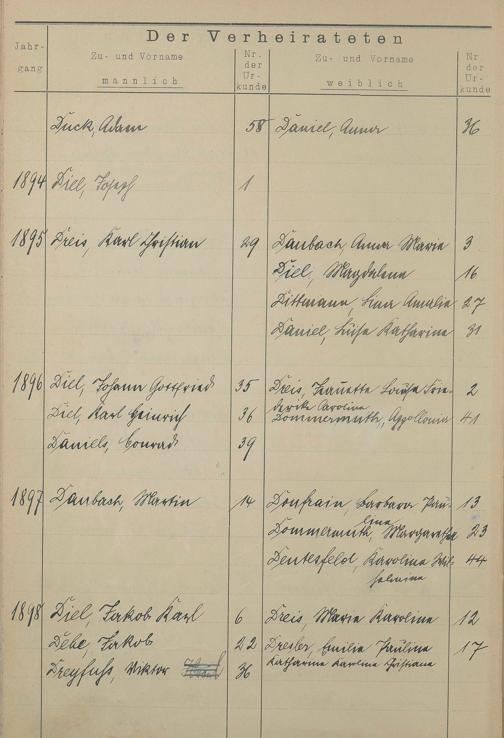 Der Verheirateten
Jahr-
gang
Zu- und Vorname
männlich
Nr.
der
Ur-
kunde
Zu- und Vorname
weiblich
Nr
der
Ur-
kunde
Duck, Adam 58 Daniel, Anna 36
1894 Diel, Joseph 1
1895 Dreis, Karl Christian 29 Danbach Anna Marie 3
Diel, Magdalena 16
Dittmann, Amalie 27
Daniel, Luise Katharina 31
1896 Diel, Johann Gottfried 35 Dreis, Louise Frie- 2
derike Carolina
Diel, Karl Heinrich 36 Dommermuth, Appollonia 41
Daniels, Conrad 39
1897 Danbach, Martin 14 Barbara Pau- 13
line
Dommermuth, Margaretha 23
Dentesfeld, Karolina Wil- 44
helmine
1898 Diel, Jakob Karl 6 Dreis, Maria Karolina 12
Jakob 22 Dresler, Emilie Pauline 17
Katharine Karoline Christiane
Dreyfuß, Viktor 36